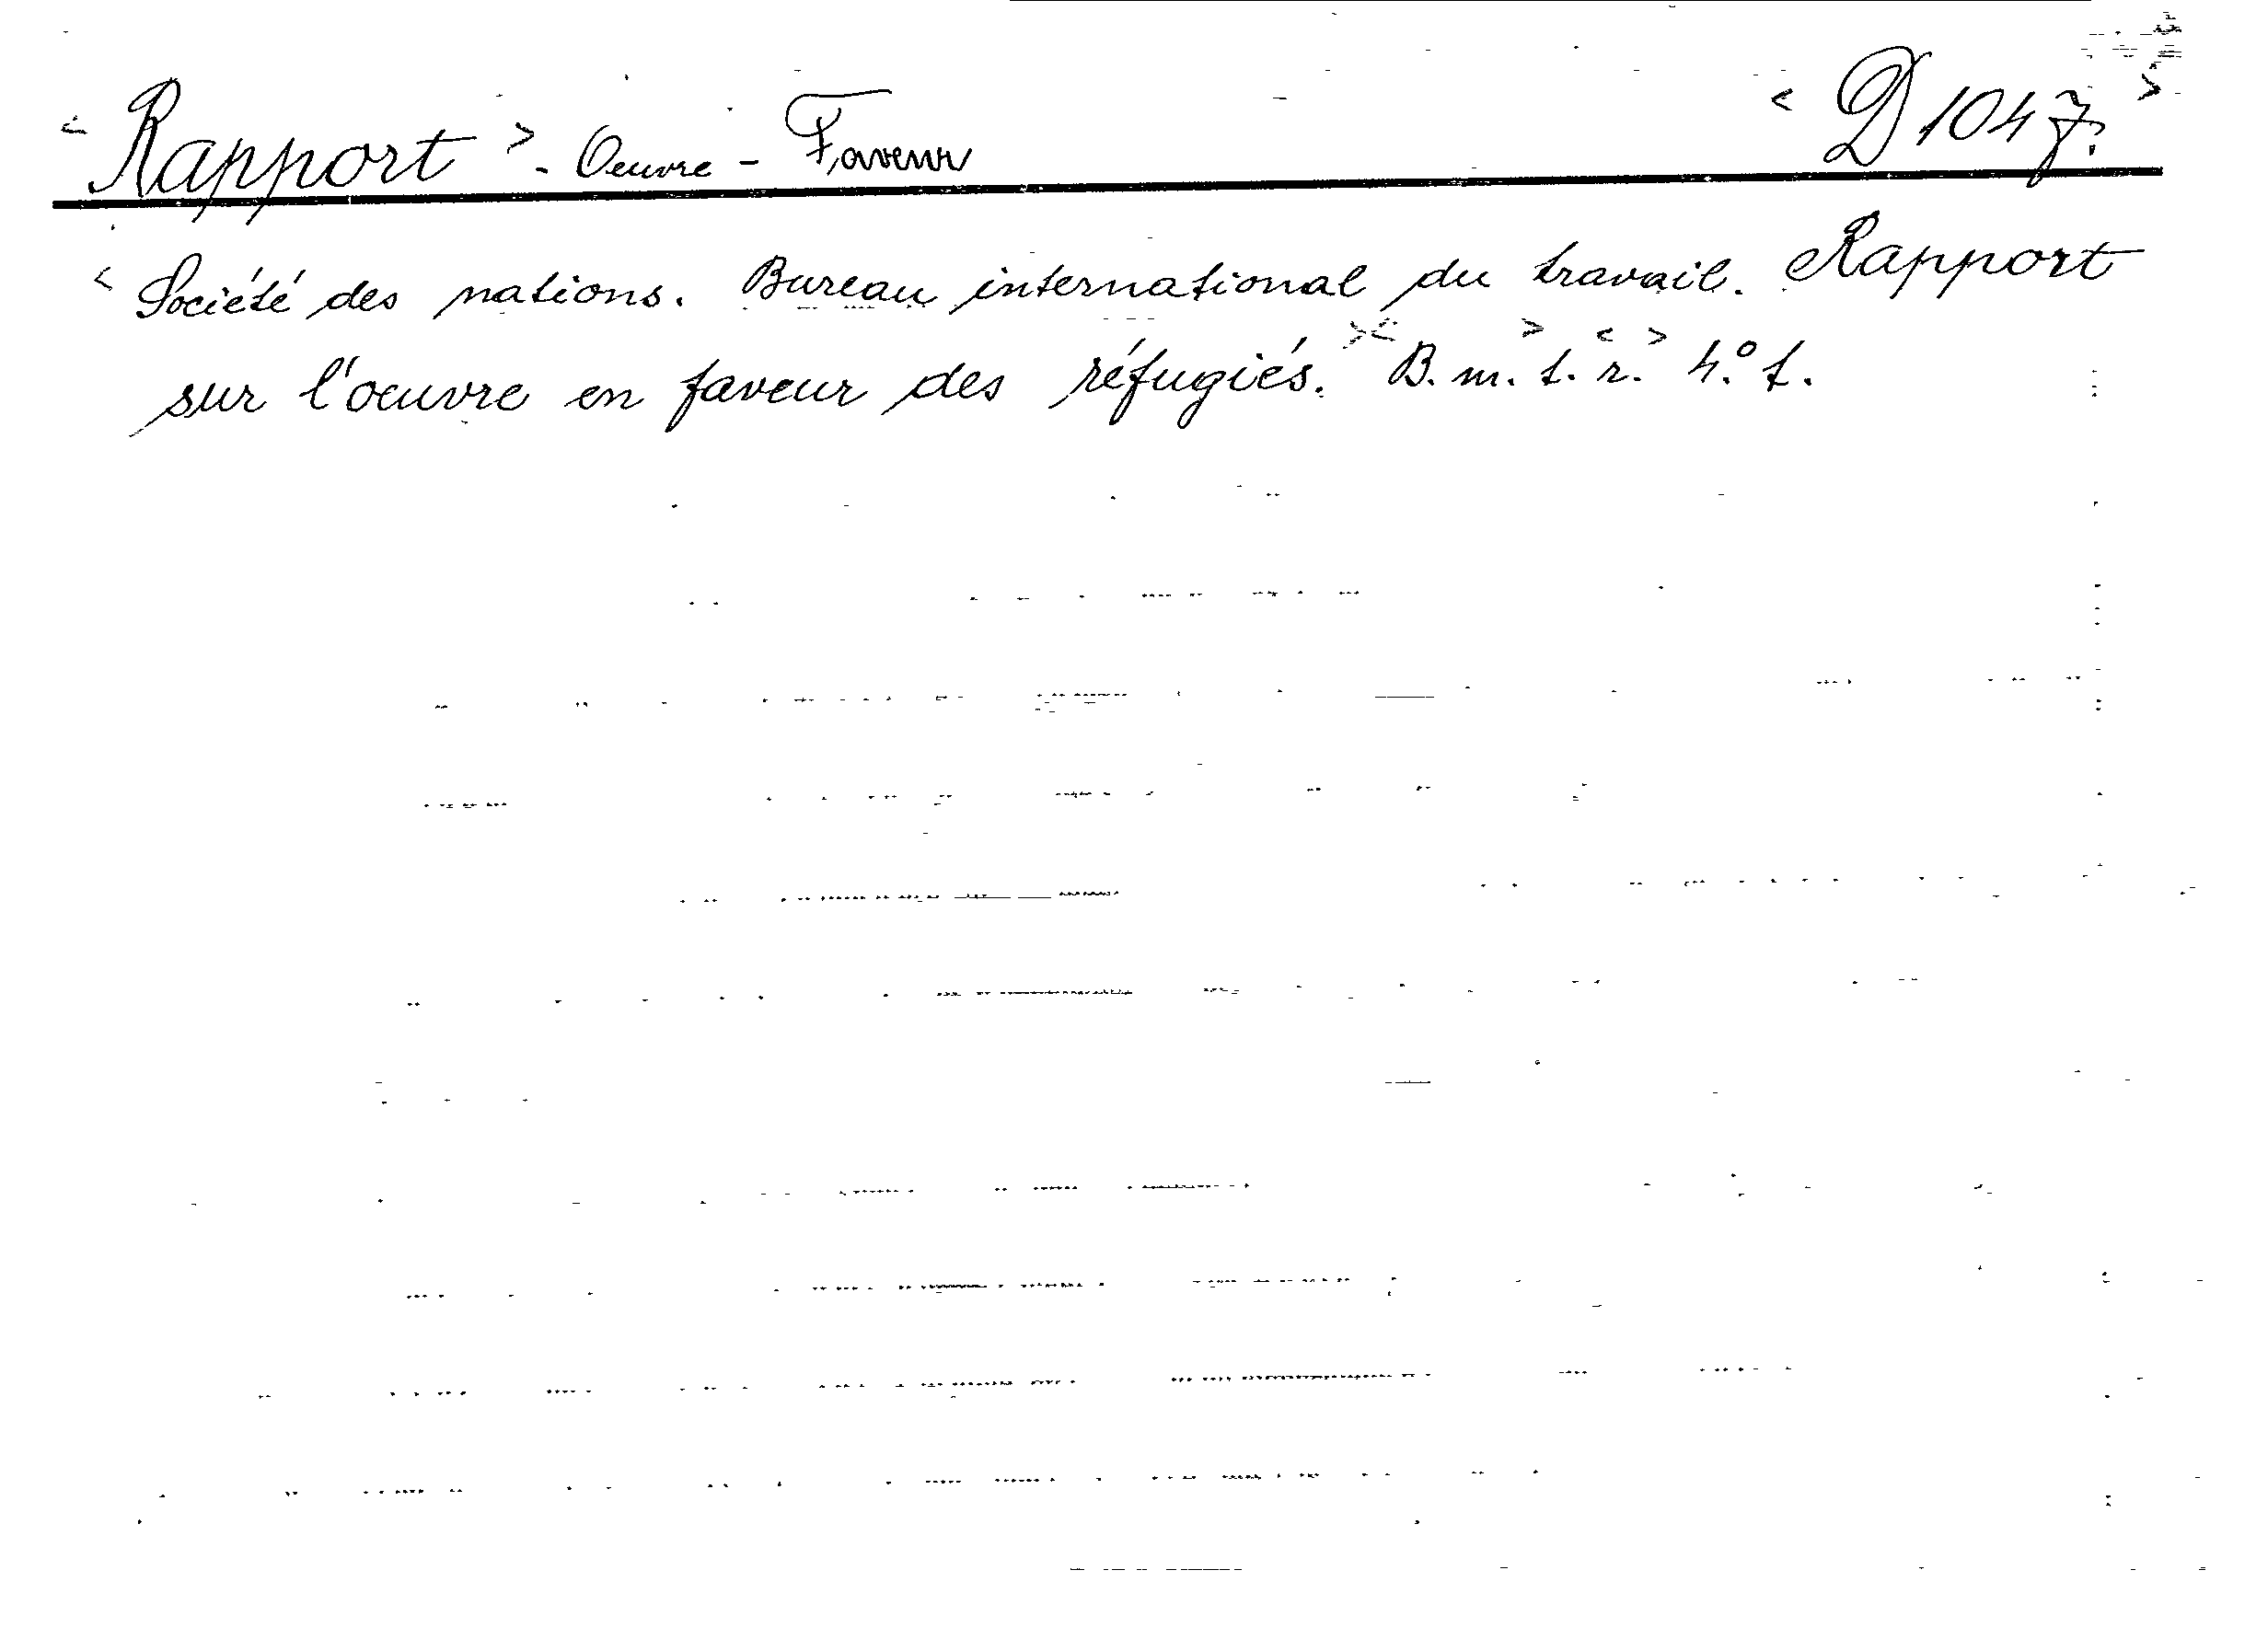 < Rapport > - Oeuvre - Faveur < D 1047. >
< Société des nations. Bureau international du travail. Rapport
sur l'oeuvre en faveur des réfugiés. >< B. m. > t. < r. > 4.° f.